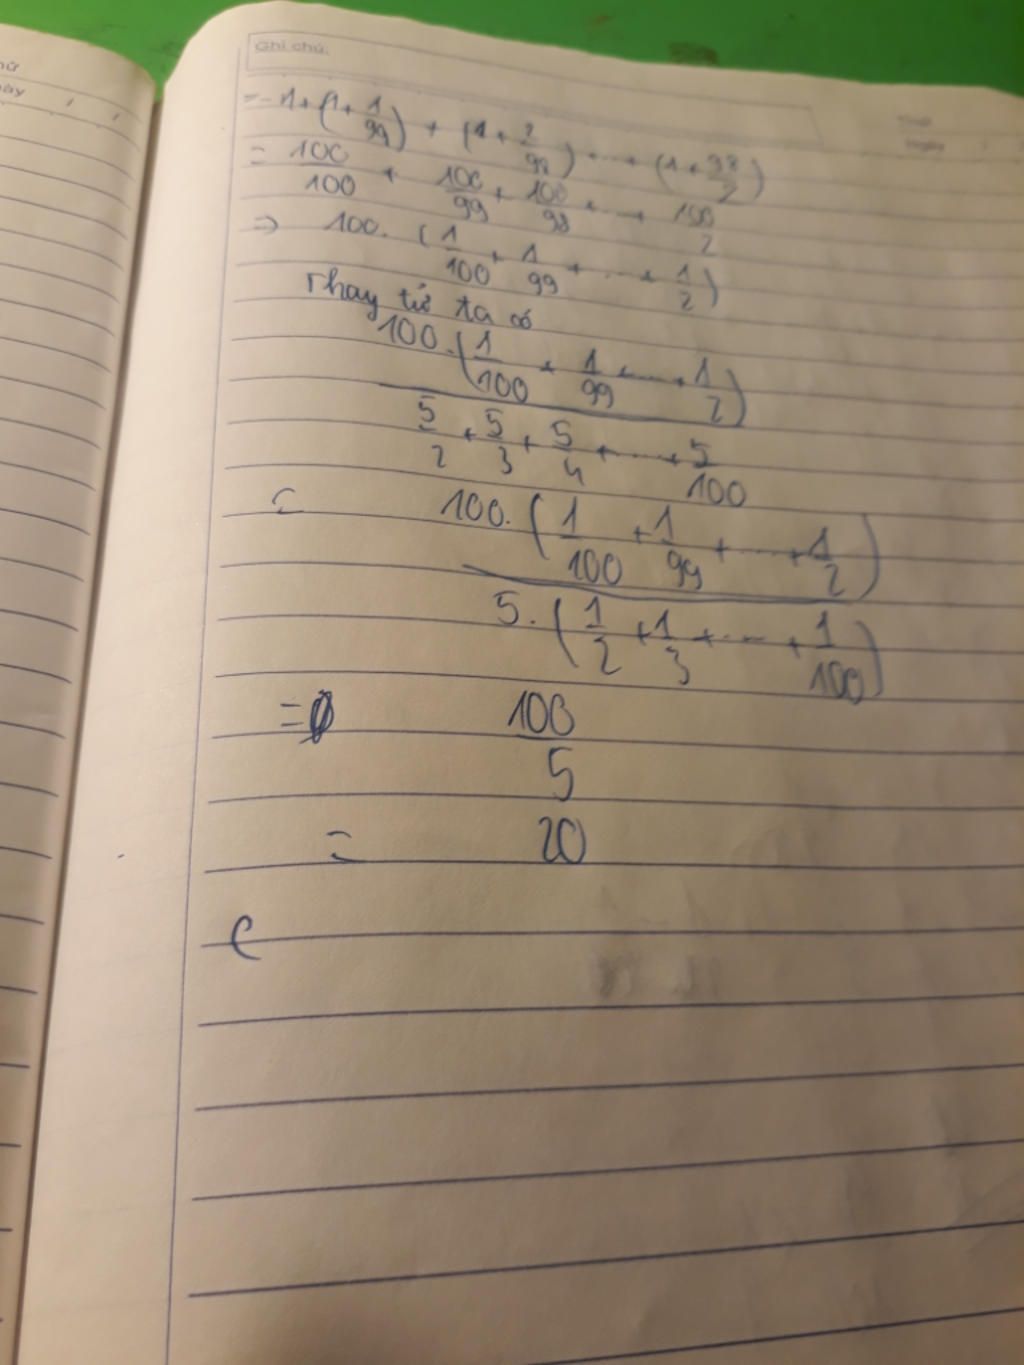 hứ
ày / /
Ghi chú:
Ngày /
= 1 + (1 + 1/99) + (1 + 2/98) + ... + (1 + 98/2)
= 100/100 + 100/99 + 100/98 + ... + 100/2
⇒ 100. (1/100 + 1/99 + ... + 1/2)
Thay tử ta có
100. (1/100 + 1/99 + ... + 1/2)
5/2 + 5/3 + 5/4 + ... + 5/100
= 100. (1/100 + 1/99 + ... + 1/2)
5. (1/2 + 1/3 + ... + 1/100)
= 100/5
= 20